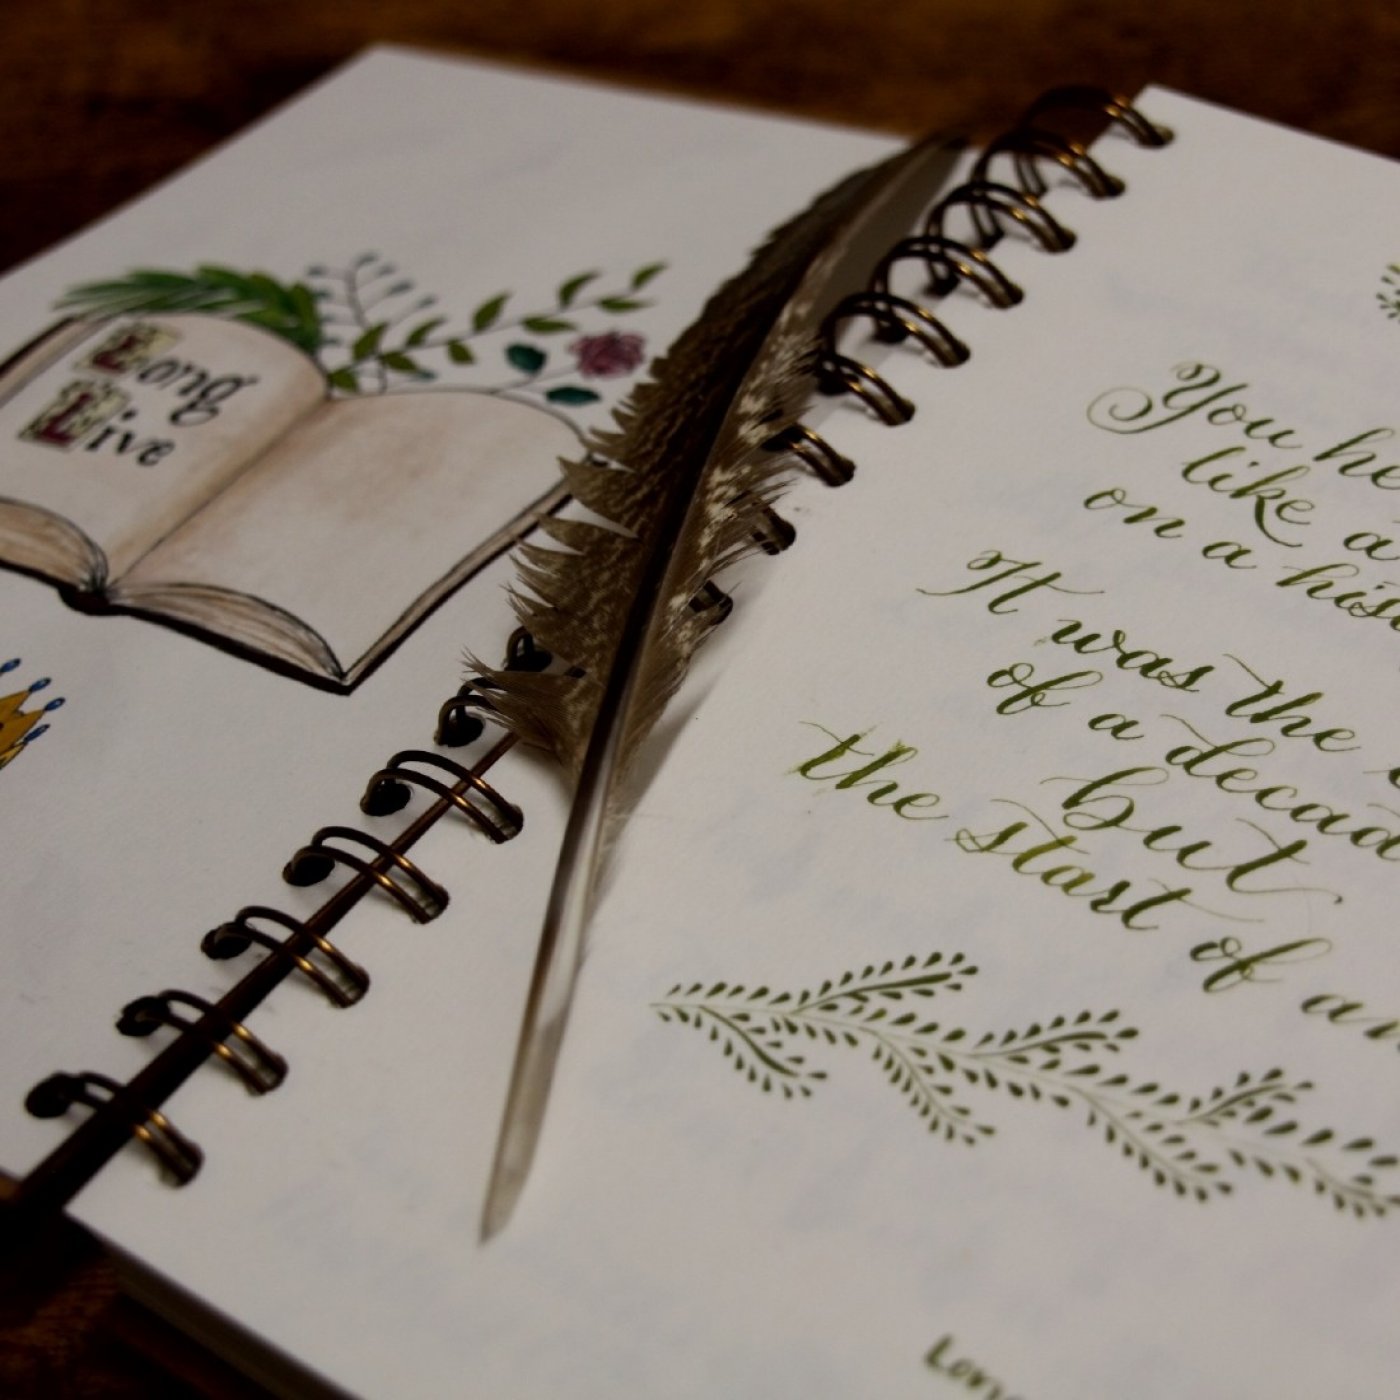 Long
Live
You he
like a
on a his
It was the
of a decad
but
the start
of an